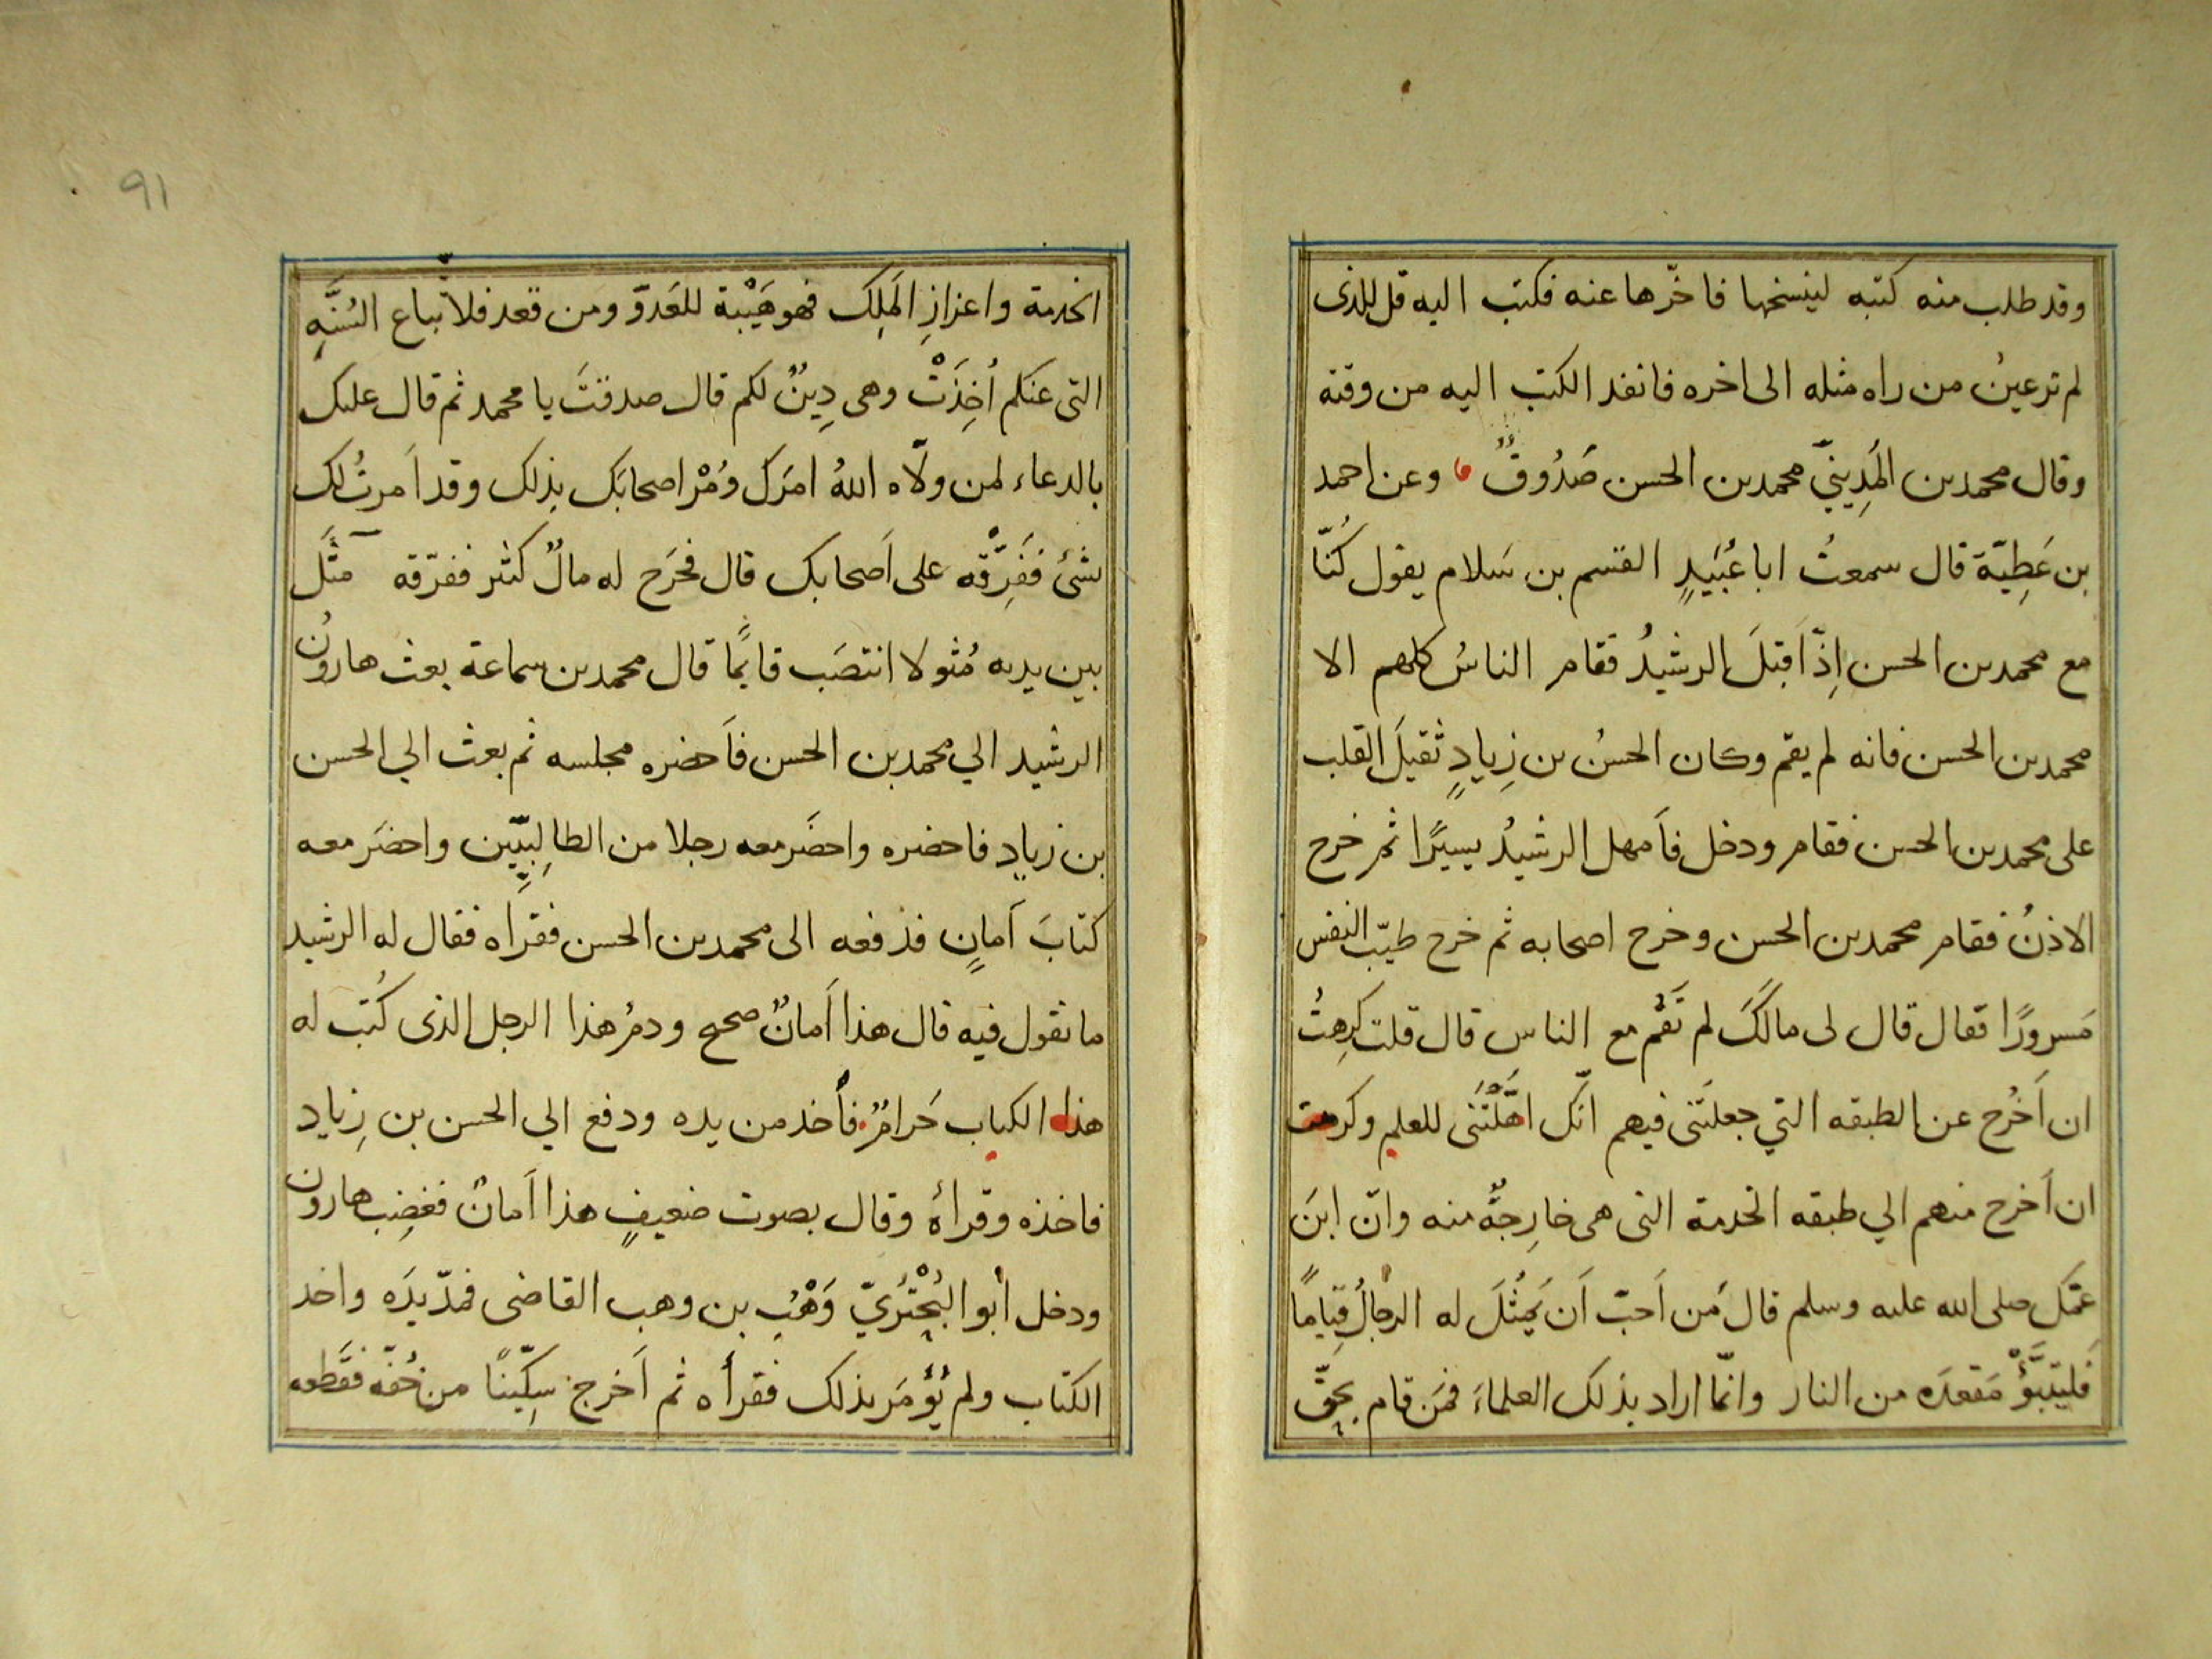 وقد طلب منه كتبه لينسخها فاخّرها عنه فكتب اليه قل للذى
لم ترعينُ من راه مثله الى اخره فانفد الكتب اليه من وقته
وقال محمد بن المَدِينيّ محمد بن الحسن صَدُوقٌ وعن احمد
بن عَطِيّة قال سمعتُ ابا عُبَيدٍ القسم بن سَلام يقول كُنّا
مع محمد بن الحسن اِذْ اَقبَلَ الرشيدُ فقام الناسُ كلهم الا
محمد بن الحسن فانه لم يقم وكان الحسنُ بن زِيادٍ ثقيلَ القلب
على محمد بن الحسن فقام ودخل فاَمهل الرشيدُ يسيرًا ثم خرج
الاذنُ فقام محمد بن الحسن وخرج اصحابه ثم خرج طيّب النفس
مَسرورًا فقال قال لى مالَكَ لم تَقُم مع الناس قال قلت كرِهتُ
ان اَخرُج عن الطبقه التي جعلتَنى فيهم انّك اهّلْتَنى للعلم وكرهت
ان اَخرج منهم الي طبقه الخدمة التى هى خارِجةٌ منه وانّ ابنَ
عمّكَ صلى الله عليه وسلم قال مَن اَحبّ اَن يَمثُلَ له الرجالُ قِيامًا
فليتبوَّؤْ مَقعدَه من النار وانّما اراد بذلك العلماءَ فمَن قام بحقِّ
الخدمة واعزازِ المَلِك فهو هَيْبة للعَدوّ ومن قعد فلاتّباع السُنَّهِ
التى عنكم اُخِذَتْ وهى دِينٌ لكم قال صدقتَ يا محمد ثم قال عليك
بالدعاء لمن ولّاه اللهُ امرَك ومُرْ اصحابَك بذلك وقد اَمرتُ لك
بشئ ففَرِّقْه على اَصحابك قال فخَرَج له مالٌ كثير ففرّقه مَثَلَ
بين يديه مُثولا انتصَب قايمًا قال محمد بن سماعة بعث هارونُ
الرشيد الي محمد بن الحسن فاَحضره مجلسه ثم بعث الي الحسن
بن زيادٍ فاحضره واحضَر معه رجلا من الطالِبِيّين واحضَر معه
كتابَ اَمانٍ فدفعه الى محمد بن الحسن فقراَه فقال له الرشيد
ما تقول فيه قال هذا اَمانٌ صحيح ودمُ هذا الرجل الذى كُتب له
هذا الكتاب حَرامٌ فأخذ من يده ودفع الي الحسن بن زِياد
فاخذه وقرأهُ وقال بصوت ضعيفٍ هذا اَمانٌ فغضِب هارون
ودخل أبو البُخْتُريّ وَهْبُ بن وهب القاضى فمدّ يدَه واخد
الكتاب ولم يُؤمَر بذلك فقرأه ثم اَخرج سِكّينًا من خُفّه فقَطعه
٩١